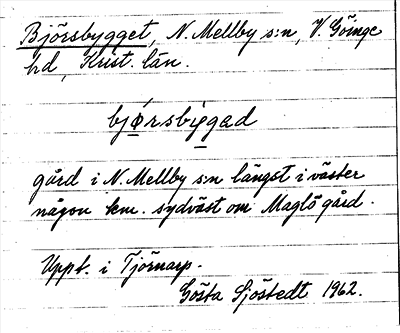 Björsbygget, N. Mellby s:n, V. Göinge
hd, Krist. län.
bjørsbyggad
gård i N. Mellby s:n längst i väster
någon km. sydväst om Maglö gård.
Uppt. i Tjörnarp.
Gösta Sjöstedt 1962.